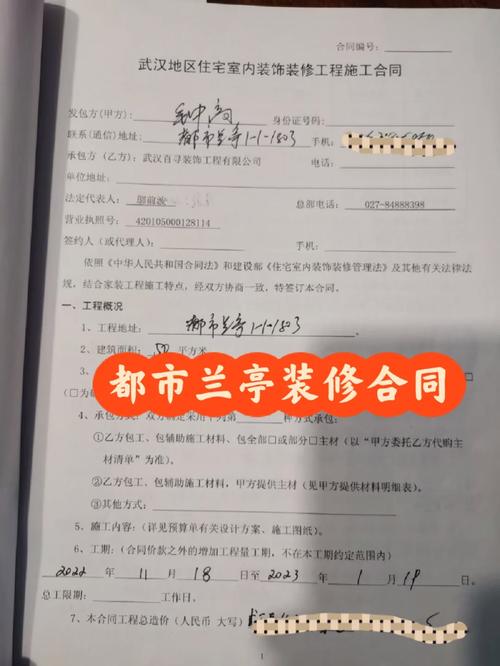 合同编号：
武汉地区住宅室内装饰装修工程施工合同
发包方(甲方)： 身份证号码：
联系(通信)地址：都市兰亭1-1-1803 手机：
承包方（乙方）：武汉百寻装饰工程有限公司 电话：
单位地址：
法定代表人： 总部电话：027-84888398
营业执照号：420105000128114
签约人（或代理人）： 手机：
依照《中华人民共和国合同法》和建设部《住宅室内装饰装修管理法》及其他有关法律法
规，结合家装工程施工特点，经双方协商一致，特签订本合同。
一、工程概况
1、工程地址：都市兰亭1-1-1803
2、建筑面积： 平方米
3、
都市兰亭装修合同
(□为
4、承包方式：双方商定采用下列第 种方式承包：
①乙方包工、包辅助施工材料、包全部□或部分□主材（以“甲方委托乙方代购主
材清单”为准）。
②乙方包工、包辅助施工材料，甲方提供主材（见甲方提供材料明细表）。
③其他方式：
5、施工内容：（详见预算单有关设计方案、施工图纸）。
6、工期：（合同价款之外的增加工程量工期，不在本工期约定范围内）
2022 年 11 月 18 日至 2023 年 1 月 19 日
总工限期： 工作日。
7、本合同工程总造价（人民币 大写）
1